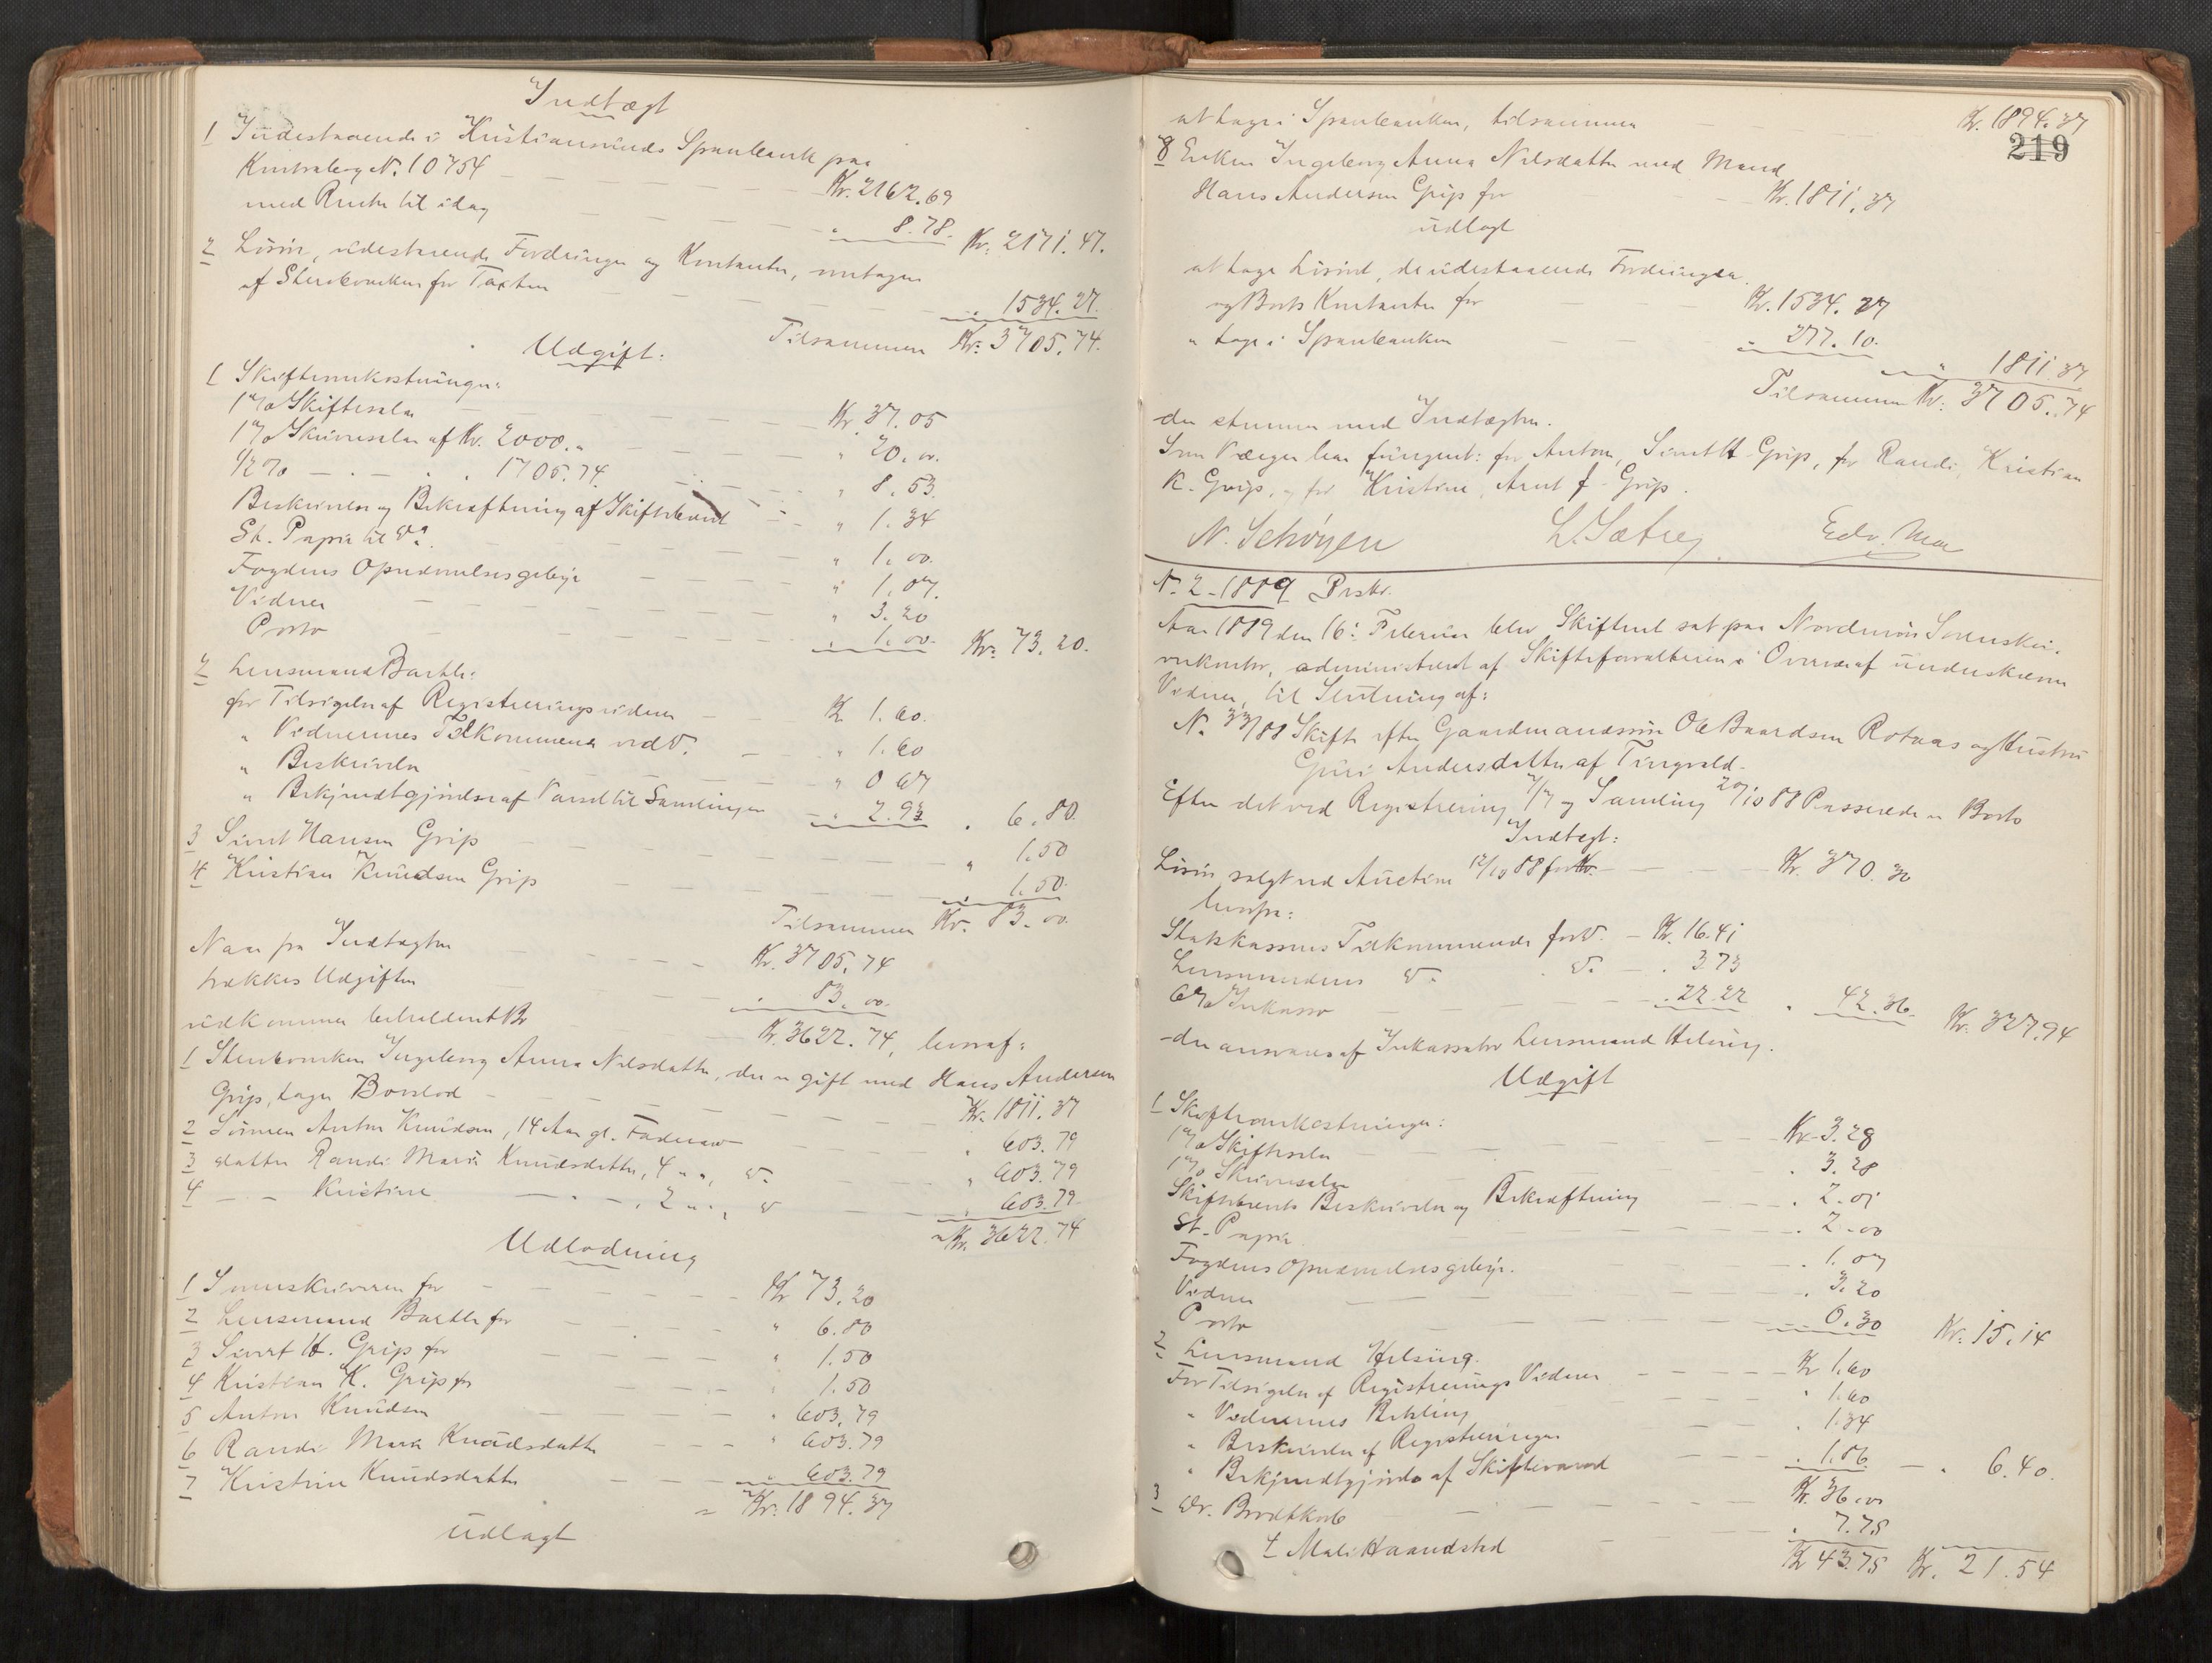 Indtægt
1 Indestaaende i Kristiansunds Sparebank paa
Kontrabog N. 10754 Kr. 2162.69
med Renter til idag " 8.78. Kr: 2171.47.
2 Løsøre, udestaaende Fordringer og Kontanter, antagen
af Stervboenken for Taxten " 1534.27.
Tilsammen Kr: 3705.74.
Udgift:
1 Skifteomkostninger:
1% Skiftesalær Kr. 37.05
1% Skriversalær af Kr. 2000." " 20.00.
1/2% — . — . " 1705.74. " 8.53.
Beskrivelse og Bekræftning af Skiftebrevet " 1.34
St. Papir til do. " 1.00.
Fogdens Opnævnelsesgebyr " 1.07.
Vidner " 3.20
Porto " 1.00. Kr: 73.20.
2 Lensmand Barthe:
for Tilsigelse af Registreringsvidner Kr. 1.60.
" Vidnernes Tilkommende ved do. " 1.60
" Beskrivelse " 0.67
" Bekjendtgjørelse af Varsel til Samlingen " 2.93 . 6.80.
3 Sivert Hansen Grip " 1.50
4 Kristian Knudsen Grip " 1.50.
Tilsammen Kr. 83.00.
Naar fra Indtægten Kr. 3705.74
trækkes Udgiften " 83.00.
udkommer beholdent Bo Kr. 3622.74, hvoraf:
1 Stervboenken Ingeborg Anna Nilsdatter, der er gift med Hans Andersen
Grip, tager Boeslod Kr. 1811.37
2 Sønnen Anton Knudsen, 14 Aar gl. Fadersarv . 603.79
3 datter Randi Marie Knudsdatter, 4 " ", do. " 603.79
4 — - Kristine — . - . 2 " " , do " 603.79
Kr. 3622.74
Udlodning
1 Sorenskriveren for Kr 73.20
2 Lensmand Barthe for " 6.80
3 Sivert H. Grip for " 1.50
4 Kristian K. Grip for " 1.50
5 Anton Knudsen " 603.79
6 Randi Marie Knudsdatter " 603.79
7 Kristine Knudsdatter " 603.79
= Kr: 1894.37
udlagt
at tage i Sparebanken, tilsammen Kr. 1894.37
219
8 Enken Ingeborg Anna Nilsdatter med Mand
Hans Andersen Grip for Kr. 1811.37
udlagt
at tage Løsøret, de udestaaende Fordringer
og Boets Kontanter for Kr. 1534.27
" tage i Sparebanken " 277.10.
" 1811.37
Tilsammen Kr: 3705.74
der stemmer med Indtægten.
Som Værger har fungeret: for Anton, Sivert H Grip, for Randi, Kristian
K. Grip, og for Kristine, Arnt J. Grip.
N. Schøyen L. Sætrey Edv. Moe
N. 2 - 1889 Beskr.
Aar 1889 den 16: Februar blev Skifteret sat paa Nordmøre Sorenskri-
verkontor, administreret af Skifteforvalteren i Overvær af underskrevne
Vidner, til Slutning af:
N. 33/88 Skifte efter Gaardmandsmn Ole Baardsen Rotaas og Hustru
Guri Andersdatter af Tingvold.
Efter det ved Registrering 7/7 og Samling 20/10 88 Passerede er Boets
Indtægt:
Løsøre, solgt ved Auction 12/10 88 for Kr. Kr. 370.30
hvorfra:
Statskassens Tilkommende for do. — Kr. 16.41
Lensmandens do. do. — . 3.73
6% Inkasso . 22.22 . 42.36. Kr. 327.94
der ansvares af Inkassator Lensmand Helsing.
Udgift
1 Skifteomkostninger:
1% Skiftesalær Kr. 3.28
1% Skriversalær . 3.28
Skiftebrevets Beskrivelse og Bekræftning . 2.01
St. Papir . 2.00
Fogdens Opnævnelsesgebyr. . 1.07
Vidner . 3.20
Porto 0.30 Kr. 15.14
2 Lensmand Helsing.
For Tilsigelse af Registrerings Vidner Kr 1.60
" Vidnernes Betaling " 1.60
" Beskrivelse af Registreringen . 1.34
" Bekjendtgjørelse af Skiftevarsel . 1.86 — . 6.40.
3 Dr. Brodtkorb Kr. 36.00
4 Mali Haandstad . 7.75
Kr 43.75 Kr. 21.54